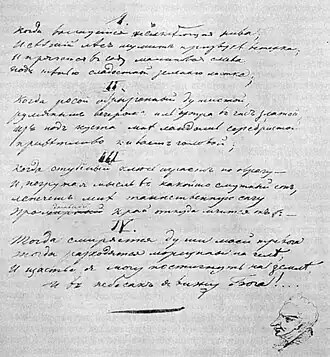 I.
Когда волнуется желтѣющая нива;
И свѣжій лѣсъ шумитъ при звукѣ вѣтерка;
И прячется въ саду малиновая слива
Подъ тѣнью сладостной зеленаго листка;
II.
Когда росой обрызганный душистой,
Румянымъ вечеромъ иль утра въ часъ златой,
Изъ подъ куста мнѣ ландышъ серебристый
Привѣтливо киваетъ головой;
III.
Когда студеный ключъ играетъ по оврагу—
И, погружая мысль въ какой-то смутный сонъ,
Лепечетъ мнѣ таинственную сагу
Про мирный край откуда мчится онъ—
IV.
Тогда смиряется души моей тревога
Тогда расходятся морщины на челѣ,
И щастье я могу постигнуть на землѣ,
И въ небесахъ я вижу Бога!....